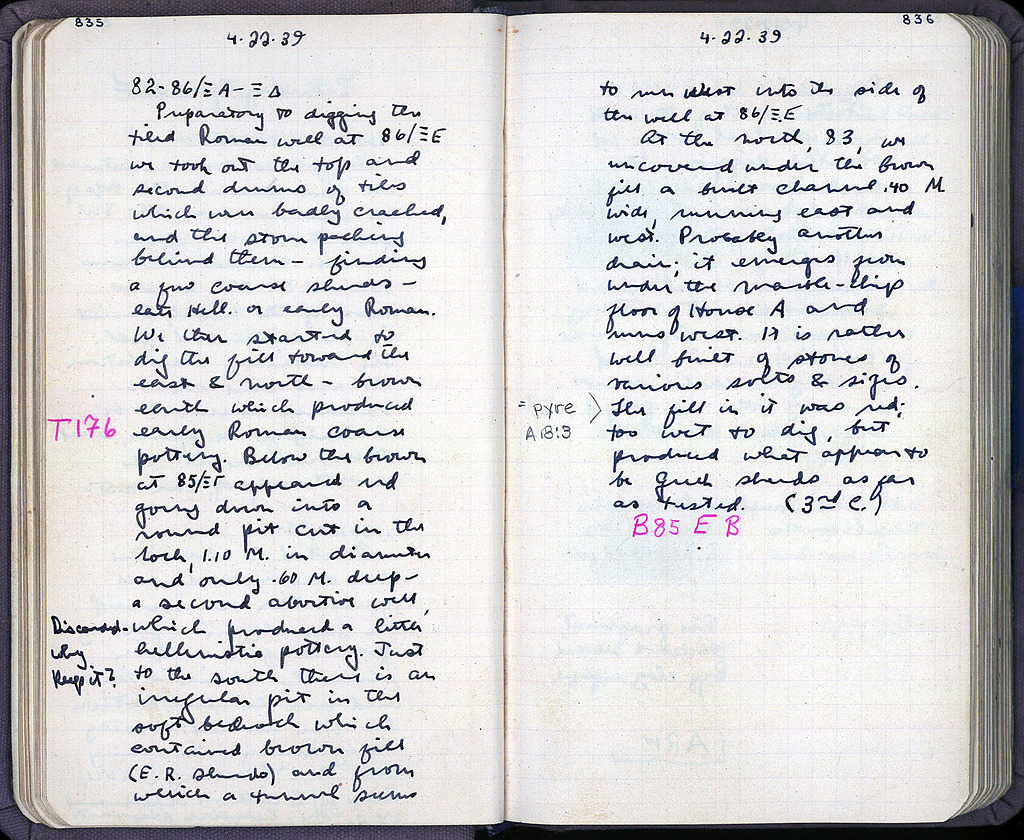 835
4.22.39
82-86/Ξ A - Ξ Δ
Preparatory to digging the
tiled Roman well at 86/Ξ E
we took out the top and
second drums of tiles
which were badly cracked,
and the stone packing
behind them - finding
a few coarse sherds -
late Hell. or early Roman.
We then started to
dig the fill toward the
east & north - brown
earth which produced
T176
early Roman coarse
pottery. Below the brown
at 85/ΞΓ appeared red
going down into a
round pit cut in the
rock, 1.10 M. in diameter
and only .60 M. deep -
a second abortive well,
Discarded -
why
keep it?
which produced a little
hellenistic pottery. Just
to the south there is an
irregular pit in the
soft bedrock which
contained brown fill
(E.R. sherds) and from
which a tunnel seems
836
4.22.39
to run west into the side of
the well at 86/Ξ E
At the north, 83, we
uncovered under the brown
fill a built channel .40 M
wide, running east and
west. Probably another
drain; it emerges from
under the marble-chip
floor of House A and
runs west. It is rather
well built of stones of
various sorts & sizes.
= pyre
A 18:3
The fill in it was red;
too wet to dig, but
produced what appear to
be Greek sherds as far
as tested. (3rd C.)
B 85 E B